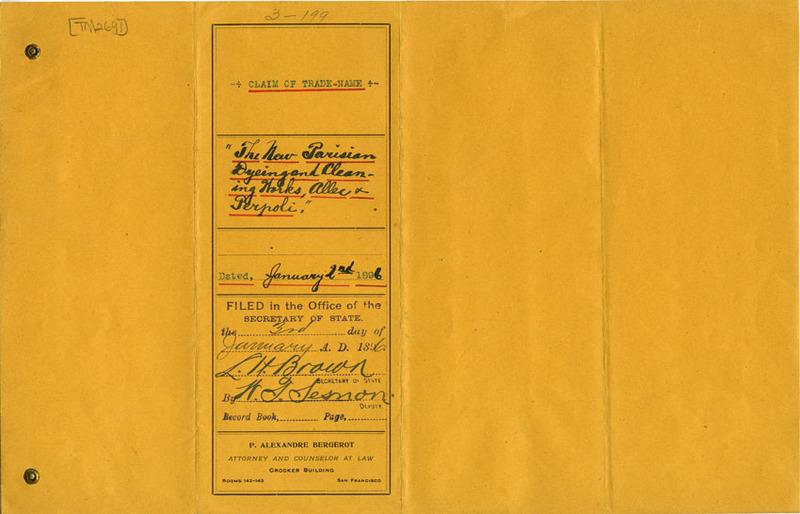 3-199
CLAIM OF TRADE-NAME
"The New Parisian
Dyeing and Clean-
ing Works, Allec &
Perpoli."
Dated, January 2nd 1896
FILED in the Office of the
SECRETARY OF STATE.
the 3rd day of
January A. D. 1896
L. H. Brown
SECRETARY OF STATE
By W. T. Sesnon
DEPUTY.
Record Book, Page,
P. ALEXANDRE BERGEROT
ATTORNEY AND COUNSELOR AT LAW
CROCKER BUILDING
ROOMS 142-143 SAN FRANCISCO